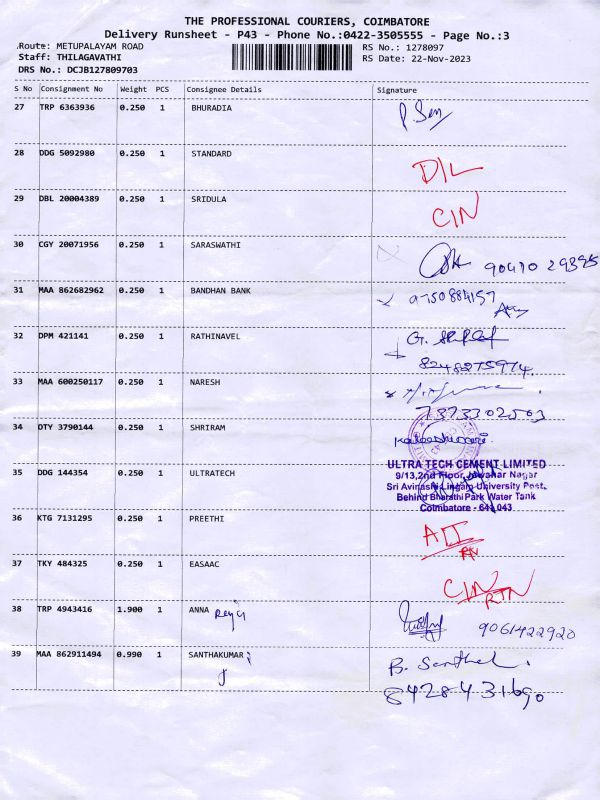 THE PROFESSIONAL COURIERS, COIMBATORE
Delivery Runsheet - P43 - Phone No.:0422-3505555 - Page No.:3
Route: METUPALAYAM ROAD RS No.: 1278097
Staff: THILAGAVATHI RS Date: 22-Nov-2023
DRS No.: DCJB127809703
S No Consignment No Weight PCS Consignee Details Signature
27 TRP 6363936 0.250 1 BHURADIA P. Sen
28 DDG 5092980 0.250 1 STANDARD D/L
29 DBL 20004389 0.250 1 SRIDULA C/N
30 CGY 20071956 0.250 1 SARASWATHI
31 MAA 862682962 0.250 1 BANDHAN BANK 9750884157
32 DPM 421141 0.250 1 RATHINAVEL
8248275974
33 MAA 600250117 0.250 1 NARESH
7373302503
34 DTY 3790144 0.250 1 SHRIRAM
35 DDG 144354 0.250 1 ULTRATECH
ULTRA TECH CEMENT LIMITED
9/13,2nd Floor, Jawahar Nagar
Sri Avinashi Lingam University Post,
Behind Bharathi Park Water Tank
Coimbatore - 641 043
36 KTG 7131295 0.250 1 PREETHI
37 TKY 484325 0.250 1 EASAAC C/N
RTN
38 TRP 4943416 1.900 1 ANNA 9061422920
39 MAA 862911494 0.990 1 SANTHAKUMAR B. Santhel
8428431690